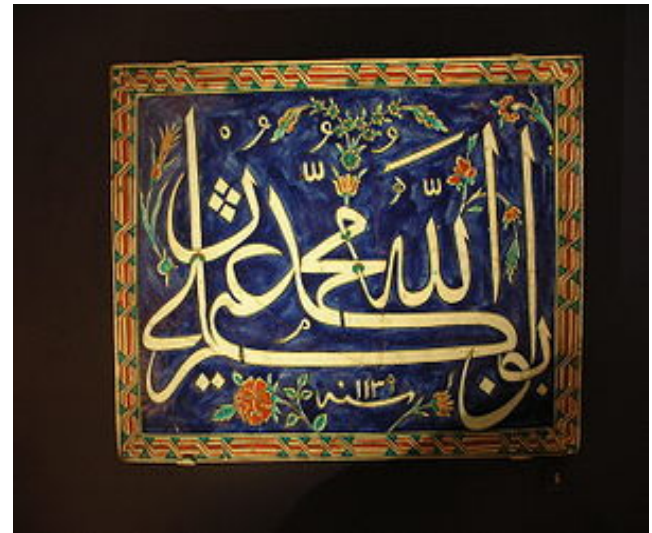 الله محمد
ابو بكر عمر عثمان على
سنه ١١٣٩